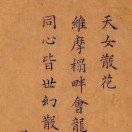 天女散花
維摩榻畔會龍
同心皆世幻散